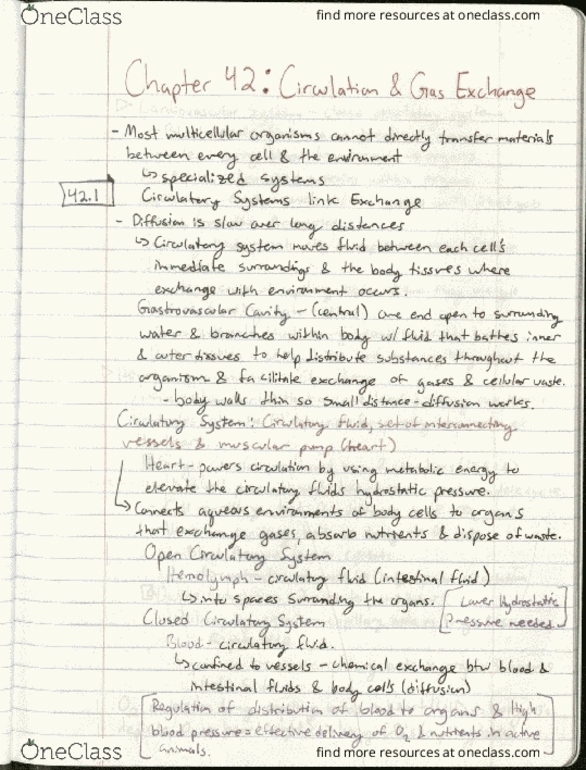 OneClass
find more resources at oneclass.com
Chapter 42: Circulation & Gas Exchange
- Most multicellular organisms cannot directly transfer materials
between every cell & the environment
↳ specialized systems
42.1
Circulatory Systems link Exchange
- Diffusion is slow over long distances
↳ Circulatory system moves fluid between each cell's
immediate surroundings & the body tissues where
exchange with environment occurs.
Gastrovascular Cavity - (central) one end open to surrounding
water & branches within body w/ fluid that bathes inner
& outer tissues to help distribute substances throughout the
organism & facilitate exchange of gases & cellular waste.
- body walls thin so small distance - diffusion works.
Circulatory System: Circulatory fluid, set of interconnecting
vessels & muscular pump (heart)
Heart - powers circulation by using metabolic energy to
elevate the circulatory fluids hydrostatic pressure.
↳ Connects aqueous environments of body cells to organs
that exchange gases, absorb nutrients & dispose of waste.
Open Circulatory System
Hemolymph - circulatory fluid (intestinal fluid)
↳ into spaces surrounding the organs. [Lower Hydrostatic
Pressure needed.]
Closed Circulatory System
Blood - circulatory fluid.
↳ confined to vessels - chemical exchange btw blood &
intestinal fluids & body cells (diffusion)
[Regulation of distribution of blood to organs & High
blood pressure = effective delivery of O2 & nutrients in active
animals.]
OneClass
find more resources at oneclass.com